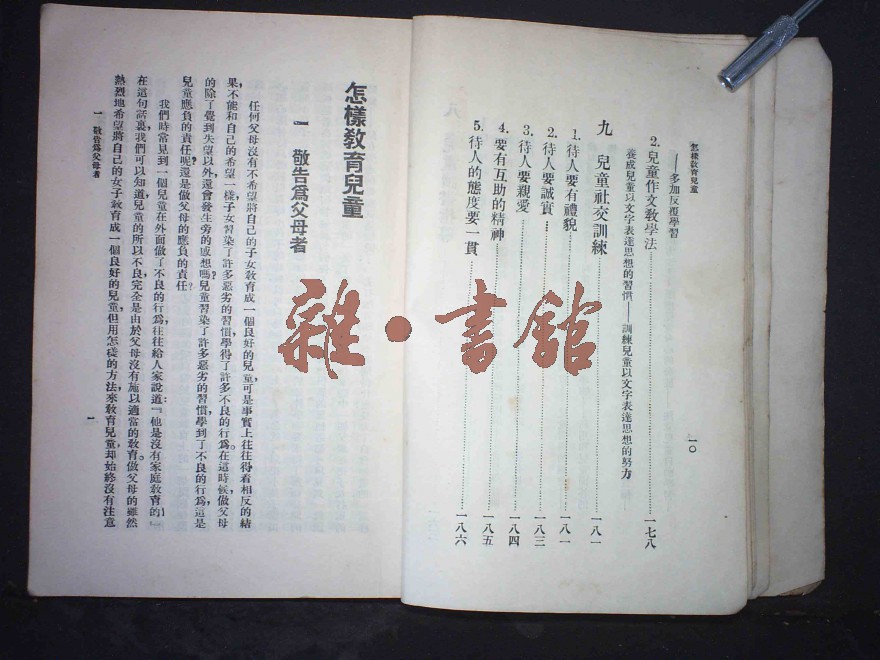 怎樣教育兒童
——多加反覆學習
2. 兒童作文教學法……一七八
養成兒童以文字表達思想的習慣——訓練兒童以文字表達思想的努力
九 兒童社交訓練……一八一
1. 待人要有禮貌……一八一
2. 待人要誠實……一八三
3. 待人要親愛……一八四
4. 要有互助的精神……一八五
5. 待人的態度要一貫……一八六
一〇
怎樣教育兒童
一 敬告爲父母者
任何父母沒有不希望將自己的子女教育成一個良好的兒童，可是事實上往往得着相反的結
果，不能和自己的希望一樣。子女習染了許多惡劣的習慣，學得了許多不良的行爲。在這時候，做父母
的除了覺到失望以外，還會發生旁的感想嗎？兒童習染了許多惡劣的習慣，學到了不良的行爲，這是
兒童應負的責任呢？還是做父母的應負的責任？
我們時常見到一個兒童在外面做了不良的行爲，往往給人家說道：『他是沒有家庭教育的』！
在這句話裏，我們可以知道兒童的所以不良，完全是由於父母沒有施以適當的教育。做父母的雖然
熱烈地希望將自己的女子教育成一個良好的兒童，但用怎樣的方法來教育兒童，却始終沒有注意
一 敬告爲父母者
一
雜·書館